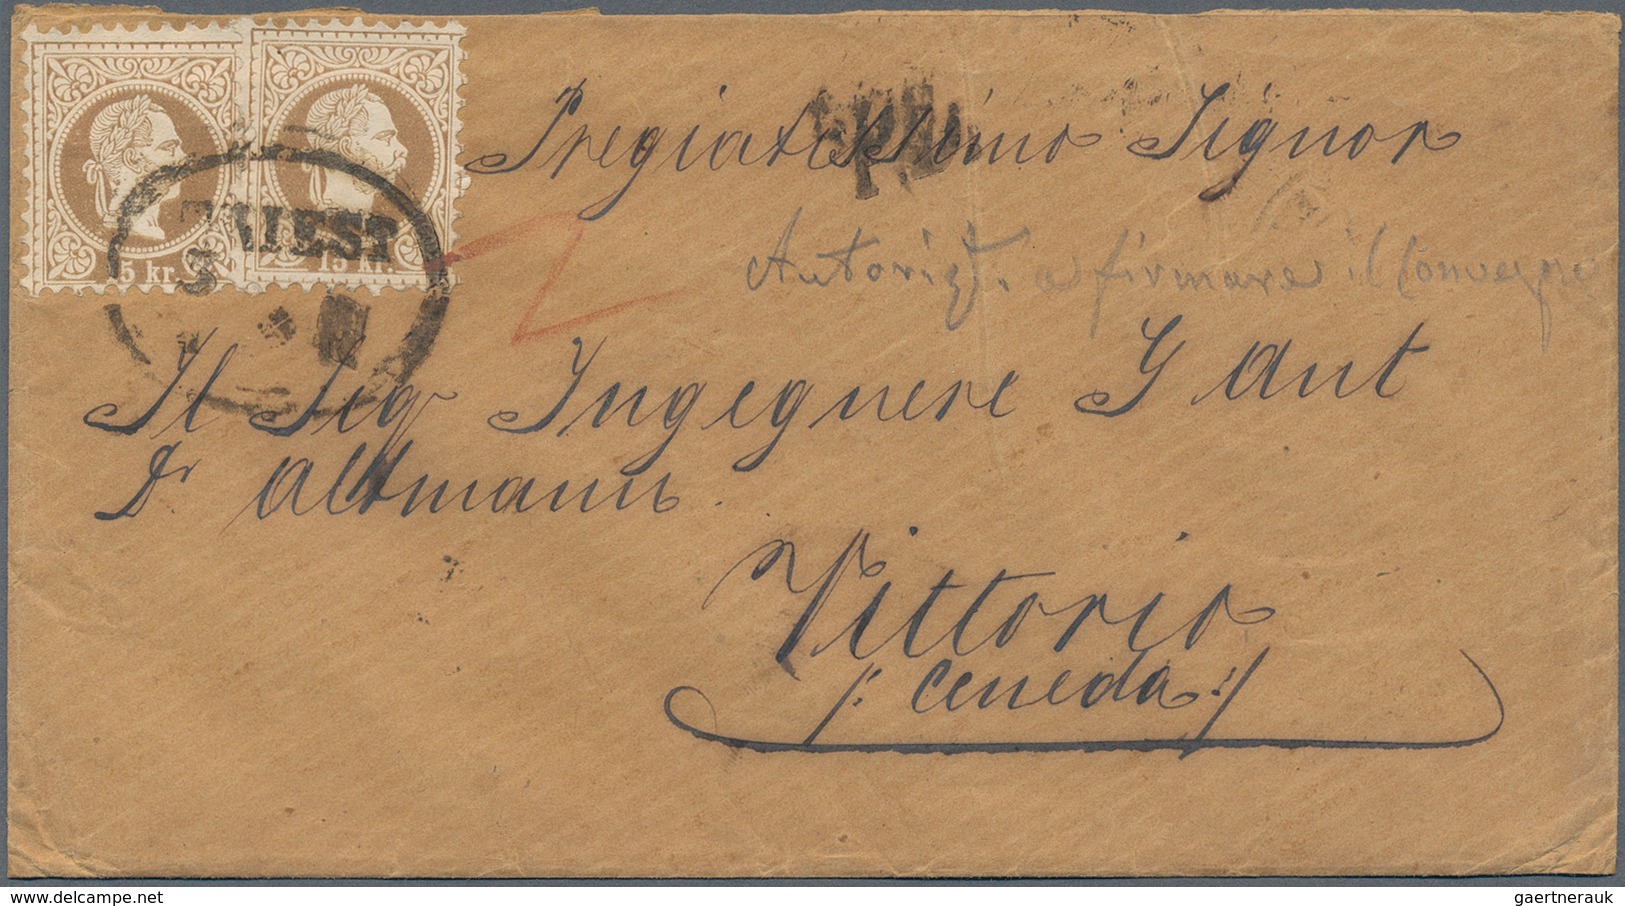 Pregiatissimo Signor
P.D.
Autorizt. a firmare il Conveg
TRIEST
15 kr. 15 kr.
Il Sig Ingegnere G Ant
Dr Altmann.
Vittorio
/: Ceneda :/
www.delcampe.net
gaertnerauk